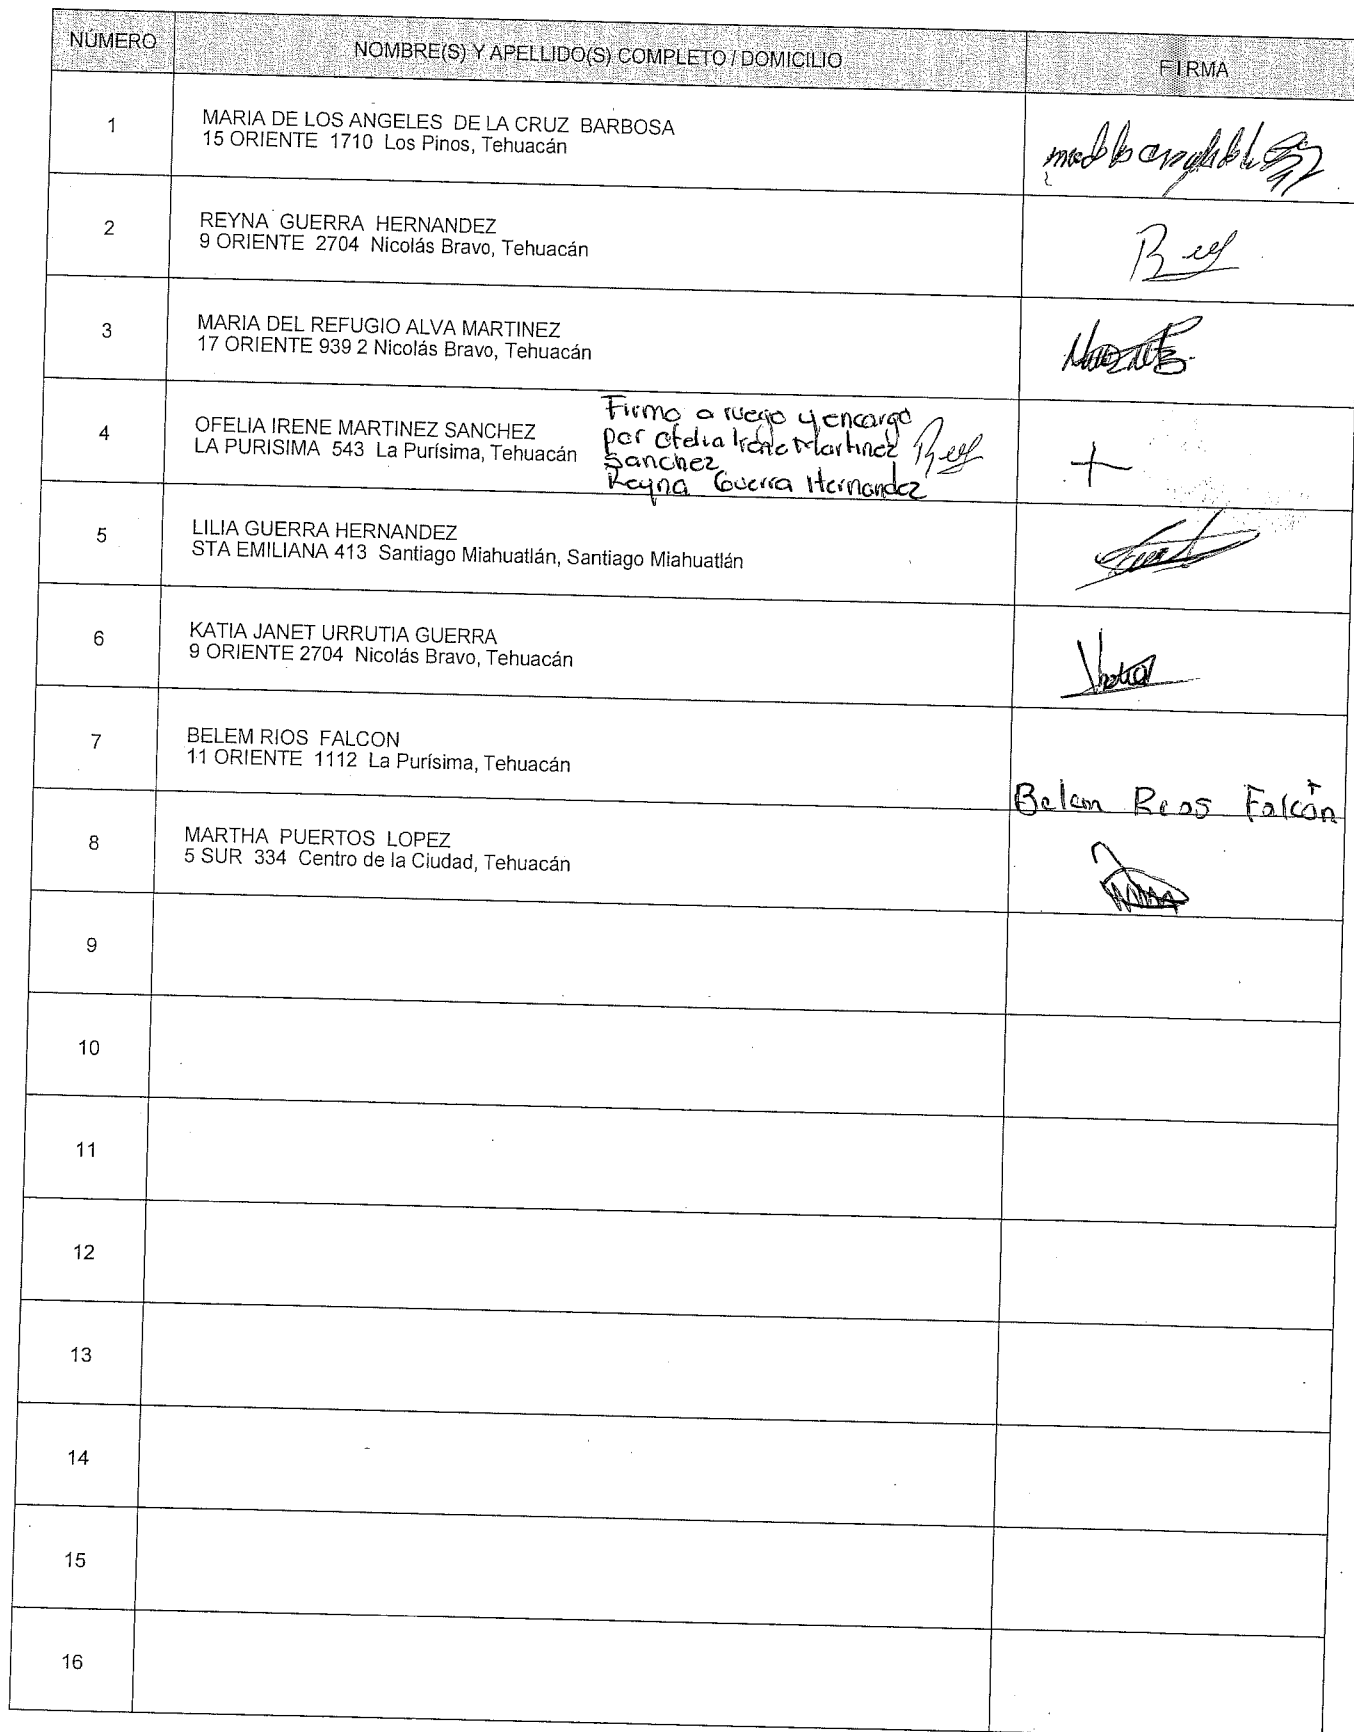 NÚMERO NOMBRE(S) Y APELLIDO(S) COMPLETO / DOMICILIO FIRMA
1 MARIA DE LOS ANGELES DE LA CRUZ BARBOSA
15 ORIENTE 1710 Los Pinos, Tehuacán
2 REYNA GUERRA HERNANDEZ
9 ORIENTE 2704 Nicolás Bravo, Tehuacán
Rey
3 MARIA DEL REFUGIO ALVA MARTINEZ
17 ORIENTE 939 2 Nicolás Bravo, Tehuacán
4 OFELIA IRENE MARTINEZ SANCHEZ
LA PURISIMA 543 La Purísima, Tehuacán
Firmo a ruego y encargo
por Ofelia Irene Martinez
Sanchez
Reyna Guerra Hernandez
Rey
+
5 LILIA GUERRA HERNANDEZ
STA EMILIANA 413 Santiago Miahuatlán, Santiago Miahuatlán
6 KATIA JANET URRUTIA GUERRA
9 ORIENTE 2704 Nicolás Bravo, Tehuacán
7 BELEM RIOS FALCON
11 ORIENTE 1112 La Purísima, Tehuacán
Belem Rios Falcón
8 MARTHA PUERTOS LOPEZ
5 SUR 334 Centro de la Ciudad, Tehuacán
9
10
11
12
13
14
15
16